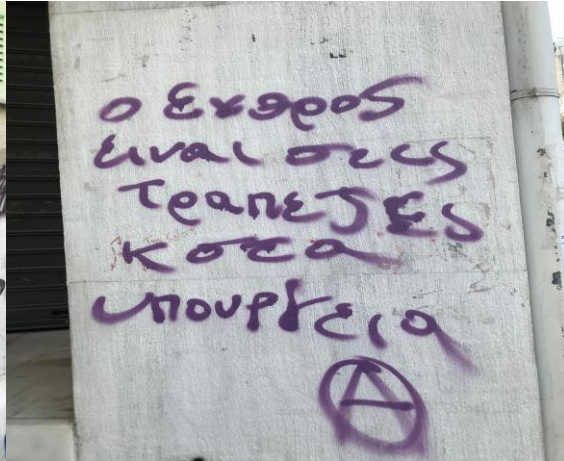 ο εχθρος
ειναι στις
τραπεζες
κ στα
υπουργεια
Ⓐ